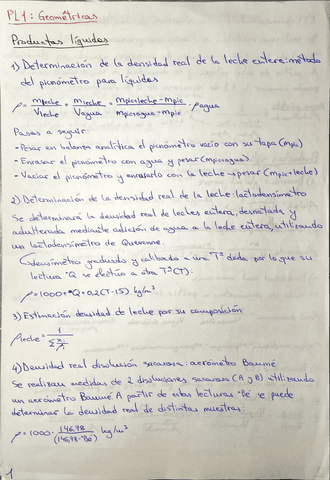 PL1: Geométricas
Productos líquidos
1) Determinación de la densidad real de la leche entera: método
del picnómetro para líquidos
ρ = mleche / Vleche = mleche / Vagua = mpic+leche - mpic / mpic+agua - mpic · ρagua
Pasos a seguir:
- Pesar en balanza analítica el picnómetro vacío con su tapa (mpic)
- Enrasar el picnómetro con agua y pesar (mpic+agua)
- Vaciar el picnómetro y enrasarlo con la leche → pesar (mpic+leche)
2) Determinación de la densidad real de la leche: lactodensímetro
Se determinará la densidad real de leches entera, desnatada y
adulterada mediante adición de agua a la leche entera, utilizando
un lactodensímetro de Quevenne.
densímetro graduado y calibrado a una Tª dada por lo que su
lectura ºQ se efectúa a otra Tª (T).
ρ = 1000 + ºQ + 0,2 (T-15) kg/m³
3) Estimación densidad de leche por su composición
ρleche = 1 / Σ xi/ρi
4) Densidad real disolución sacarosa: aerómetro Baumé
Se realizan medidas de 2 disoluciones sacarosa (A y B) utilizando
un aerómetro Baumé. A partir de estas lecturas ºBé se puede
determinar la densidad real de distintas muestras:
ρ = 1000 · 146,78 / (146,78 - ºBé) kg/m³
1